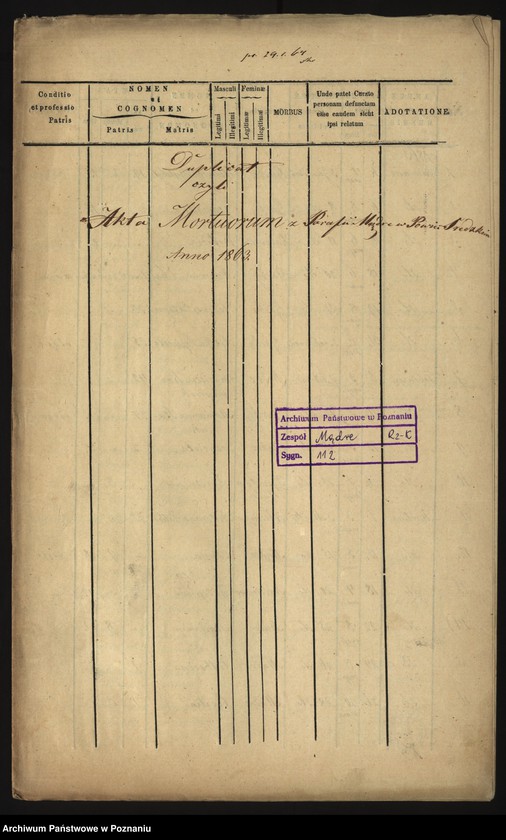 pr. 29.1.64
Conditio et professio Patris
NOMEN et COGNOMEN
Patris
Matris
Masculi
Feminæ
Legitimi
Illegitimi
Legitimæ
Illegitimæ
MORBUS
Unde patet Curato
personam defunctam
eius eandem sicht
ipsi relatam
ADOTATIONE
Duplicat
czyli
Akta Mortuorum z Parafii Mądre w Powiecie Średzkim
Anno 1863.
Archiwum Państwowe w Poznaniu
Zespół Mądre Rz-K
Sygn. 112
Archiwum Państwowe w Poznaniu